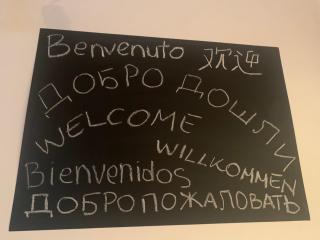 Benvenuto 欢迎
ДОБРО ДОШЛИ
WELCOME
WILLKOMMEN
Bienvenidos
ДОБРО ПОЖАЛОВАТЬ